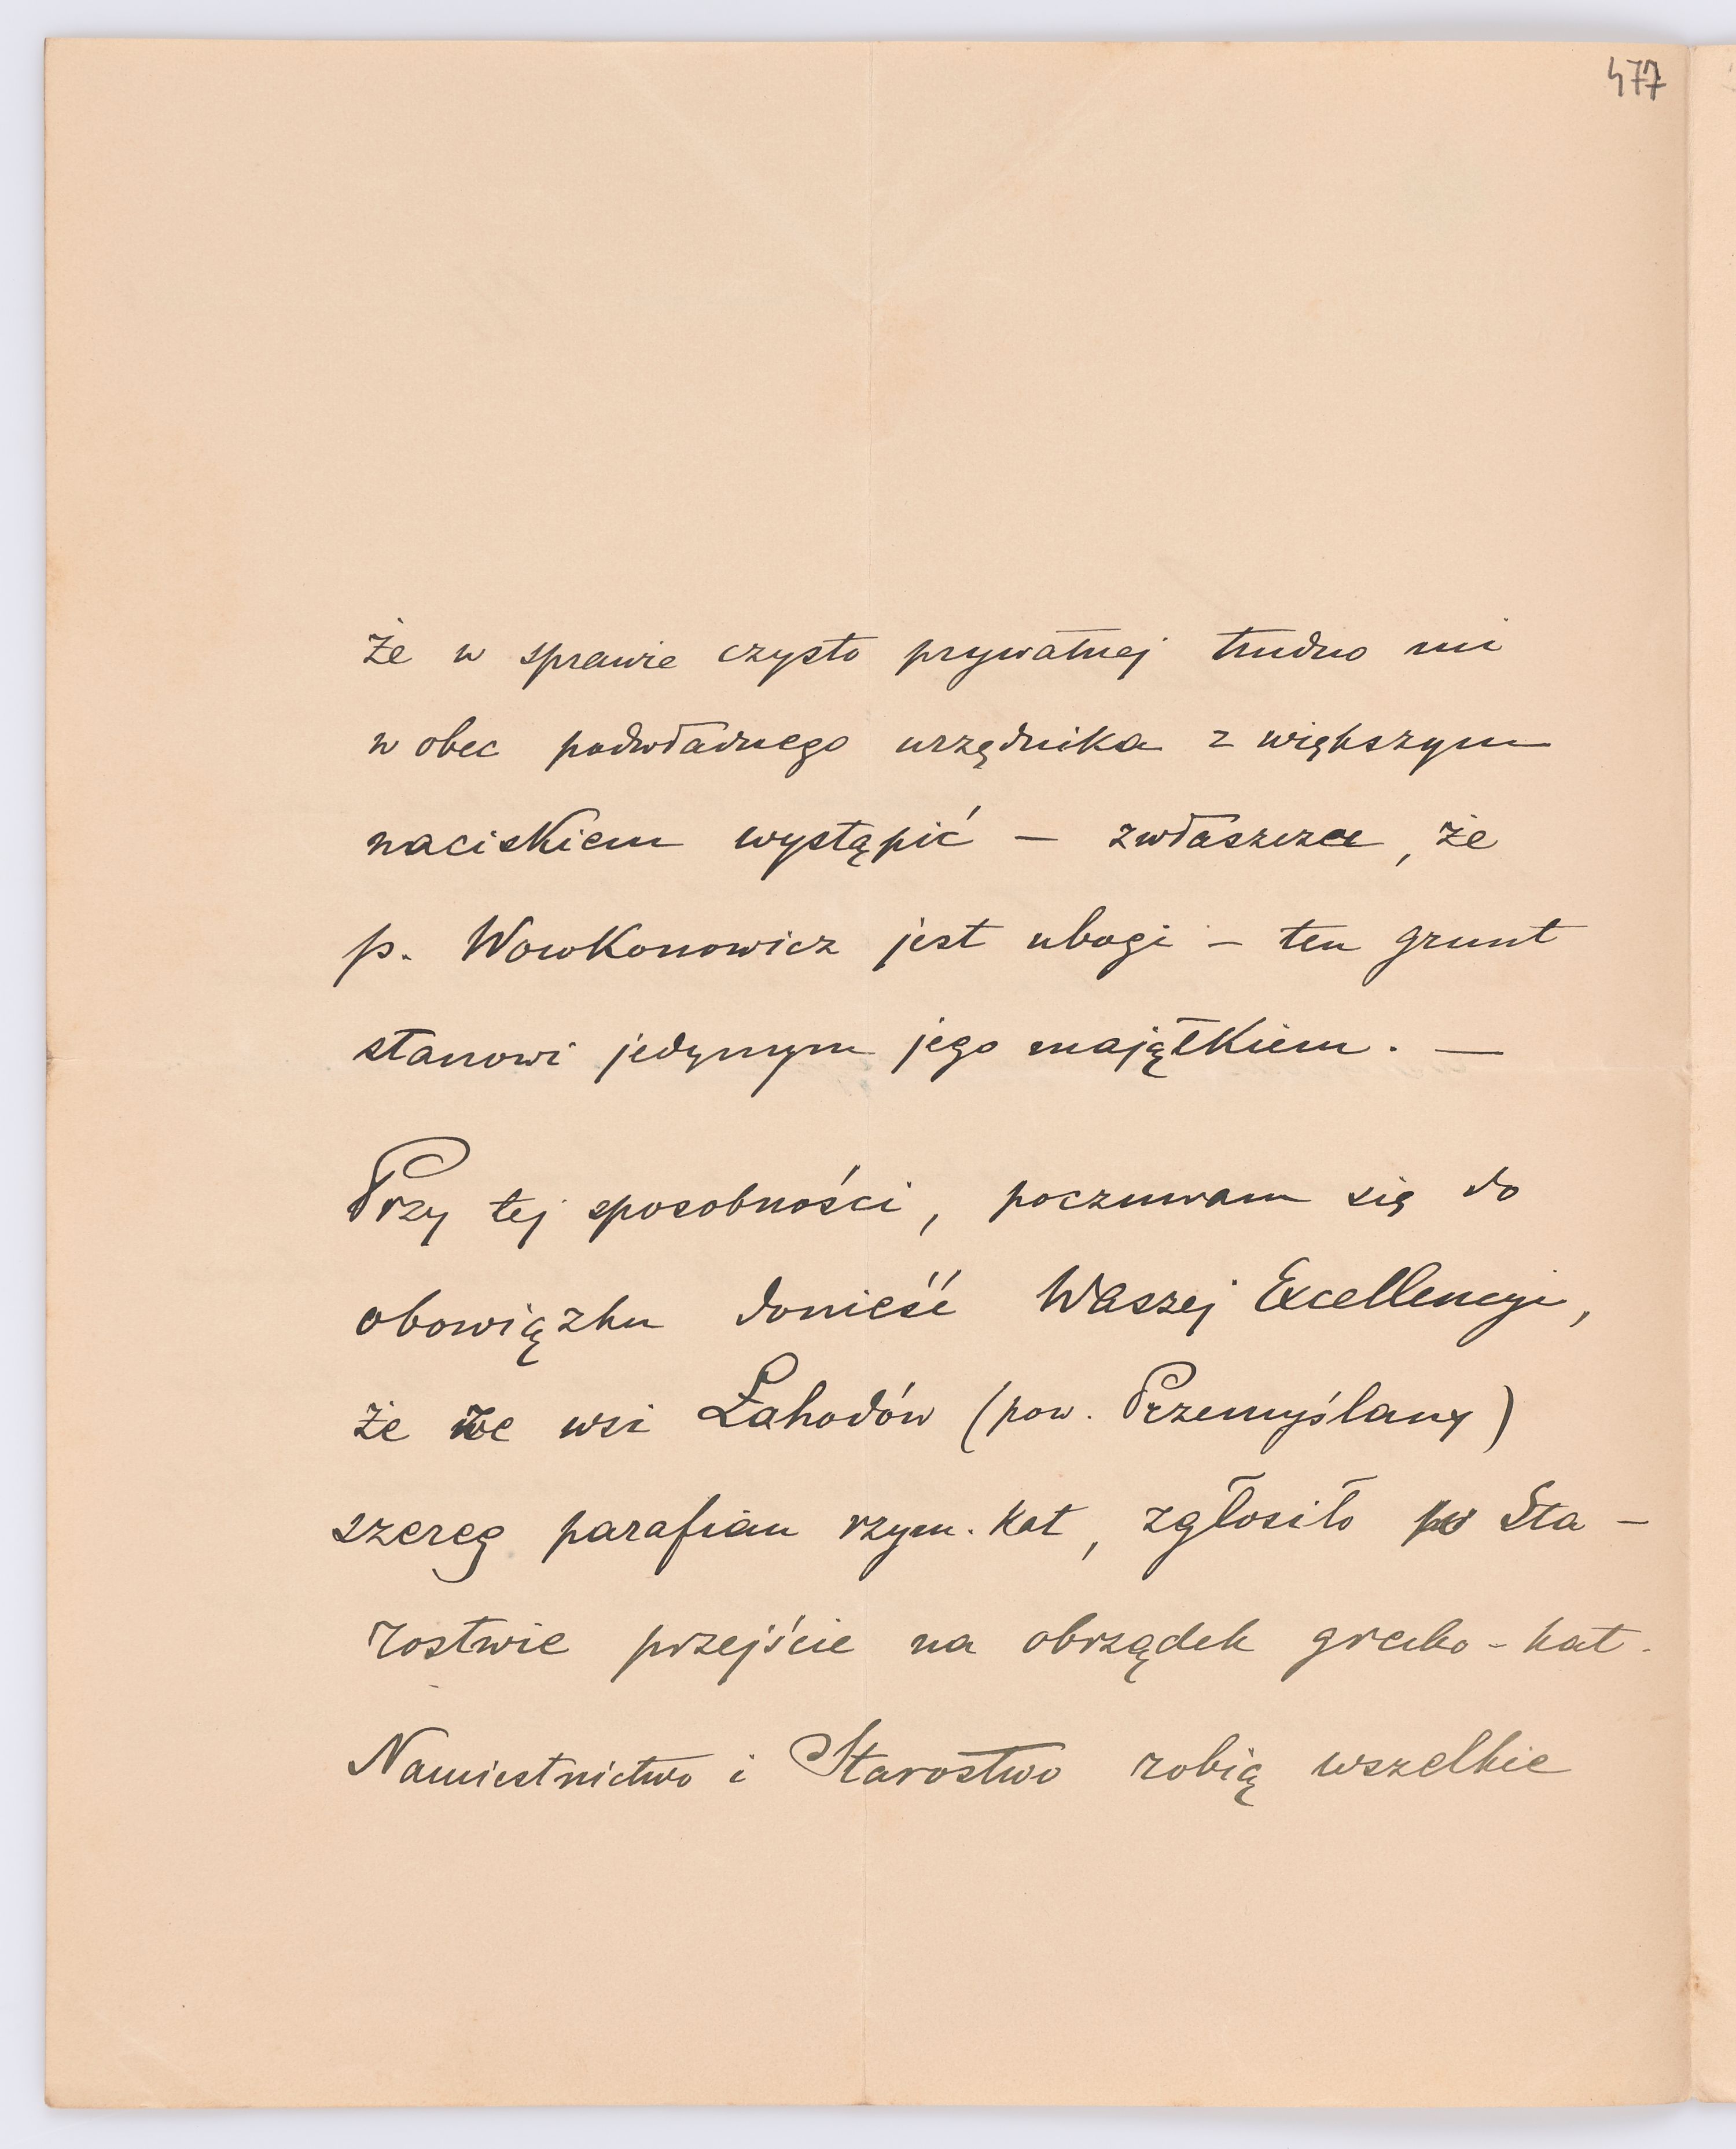 477
że w sprawie czysto prywatnej trudno mi
w obec podwładnego urzędnika z większym
naciskiem wystąpić — zwłaszcza, że
p. Wowkonowicz jest ubogi — ten grunt
stanowi jedynym jego majątkiem. —
Przy tej sposobności, poczuwam się do
obowiązku donieść Waszej Excellencyi,
że we wsi Łahodów (pow. Przemyślany)
szereg parafian rzym. kat, zgłosiło w Sta-
rostwie przejście na obrządek grecko-kat.
Namiestnictwo i Starostwo robią wszelkie